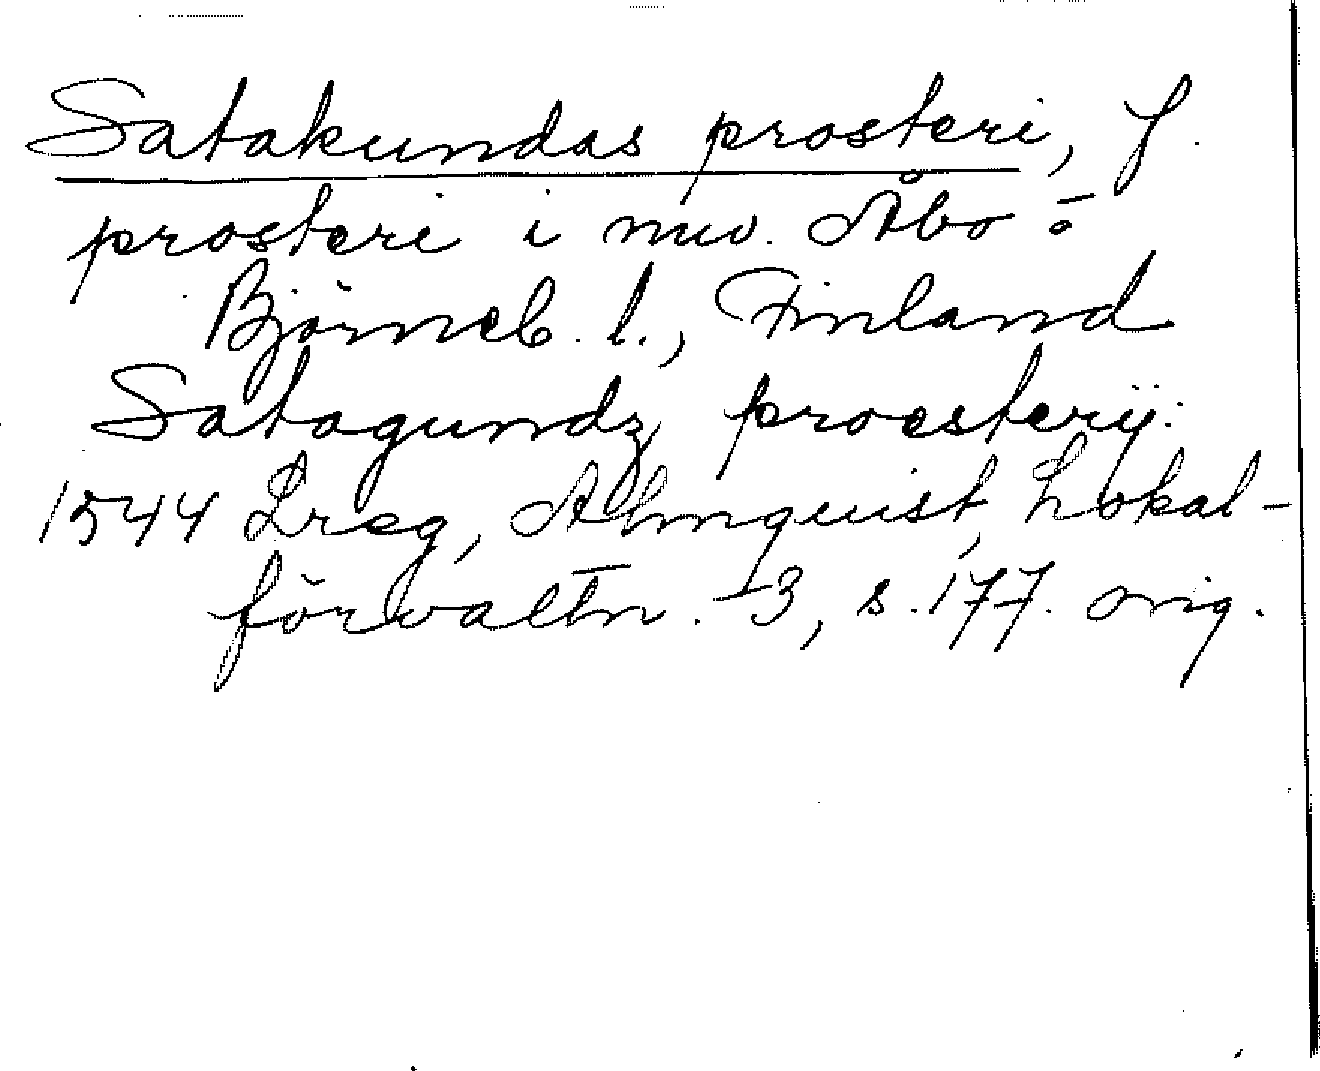 Satakundas prosteri, f.
prosteri i nuv. Åbo o
Björneb. l., Finland
Satagundz proesterij:
1544 Lreg, Almquist, Lokal-
förvaltn. I3, s. 177. orig.